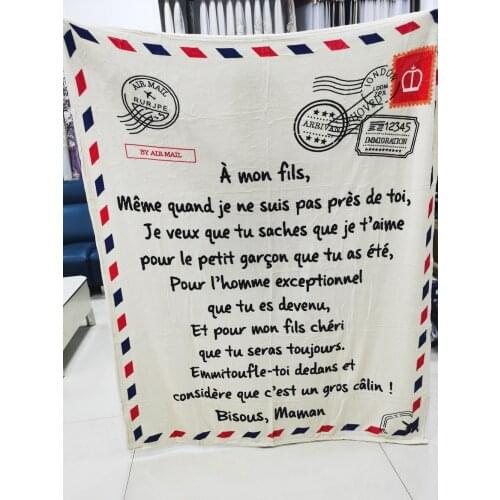 AIR MAIL
RURJPE
LONDON
LOOM
2PX
ARRIVAL
12345
IMMIGRATION
BY AIR MAIL
À mon fils,
Même quand je ne suis pas près de toi,
Je veux que tu saches que je t'aime
pour le petit garçon que tu as été,
Pour l'homme exceptionnel
que tu es devenu,
Et pour mon fils chéri
que tu seras toujours.
Emmitoufle-toi dedans et
considère que c'est un gros câlin !
Bisous, Maman